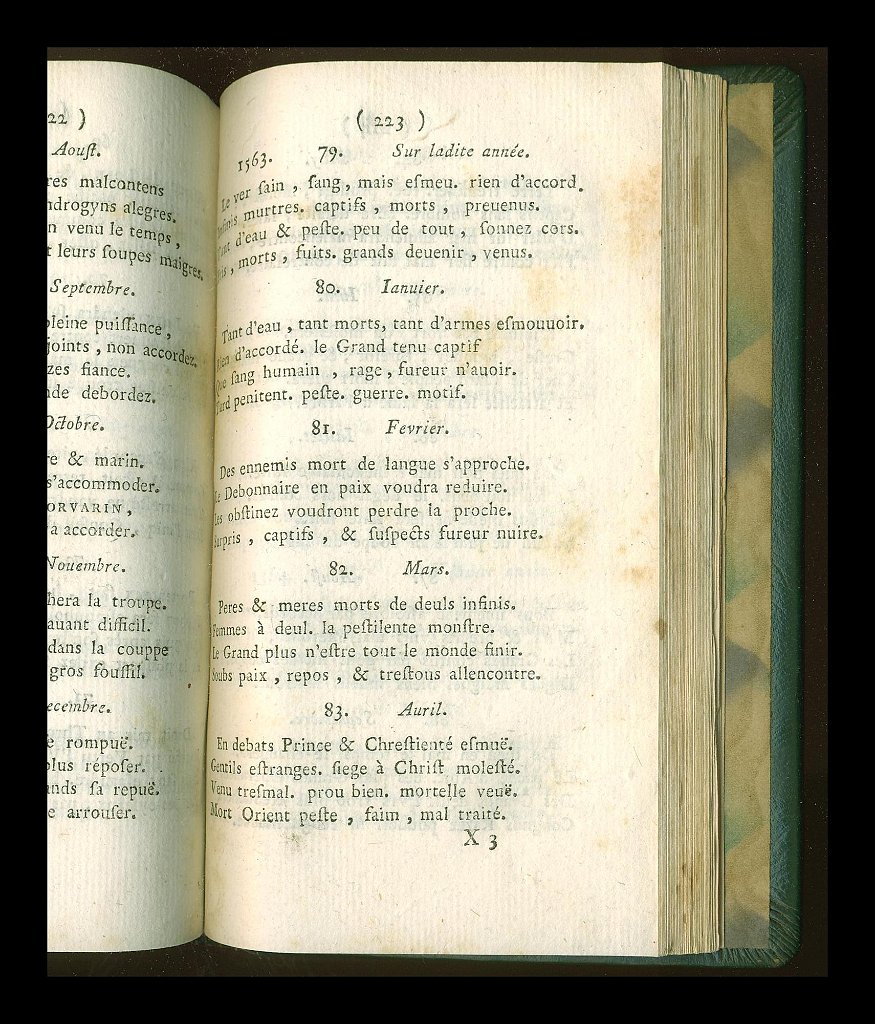 22 )
Aouſt.
res malcontens
ndrogyns alegres.
n venu le temps,
leurs ſoupes maigres.
Septembre.
leine puiſſance,
joints, non accordez.
zes fiance.
de debordez.
Octobre.
e & marin.
s'accommoder.
ORVARIN,
a accorder.
Nouembre.
hera la troupe.
auant difficil.
dans la couppe
gros fouſſil.
ecembre.
e rompuë.
plus repoſer.
nds ſa repuë.
e arrouſer.
( 223 )
1563. 79. Sur ladite année.
Le ver ſain, ſang, mais eſmeu. rien d'accord.
Infinis murtres. captifs, morts, preuenus.
Tant d'eau & peſte. peu de tout, ſonnez cors.
Pris, morts, fuits. grands deuenir, venus.
80. Ianuier.
Tant d'eau, tant morts, tant d'armes eſmouuoir.
Rien d'accordé. le Grand tenu captif
Que ſang humain, rage, fureur n'auoir.
Tard penitent. peſte. guerre. motif.
81. Fevrier.
Des ennemis mort de langue s'approche.
Le Debonnaire en paix voudra reduire.
Les obſtinez voudront perdre la proche.
Surpris, captifs, & ſuſpects fureur nuire.
82. Mars.
Peres & meres morts de deuls infinis.
Femmes à deul. la peſtilente monſtre.
Le Grand plus n'eſtre tout le monde finir.
Soubs paix, repos, & treſtous allencontre.
83. Auril.
En debats Prince & Chreſtienté eſmuë.
Gentils eſtranges. ſiege à Chriſt moleſté.
Venu treſmal. prou bien. mortelle veuë.
Mort Orient peſte, faim, mal traité.
X 3